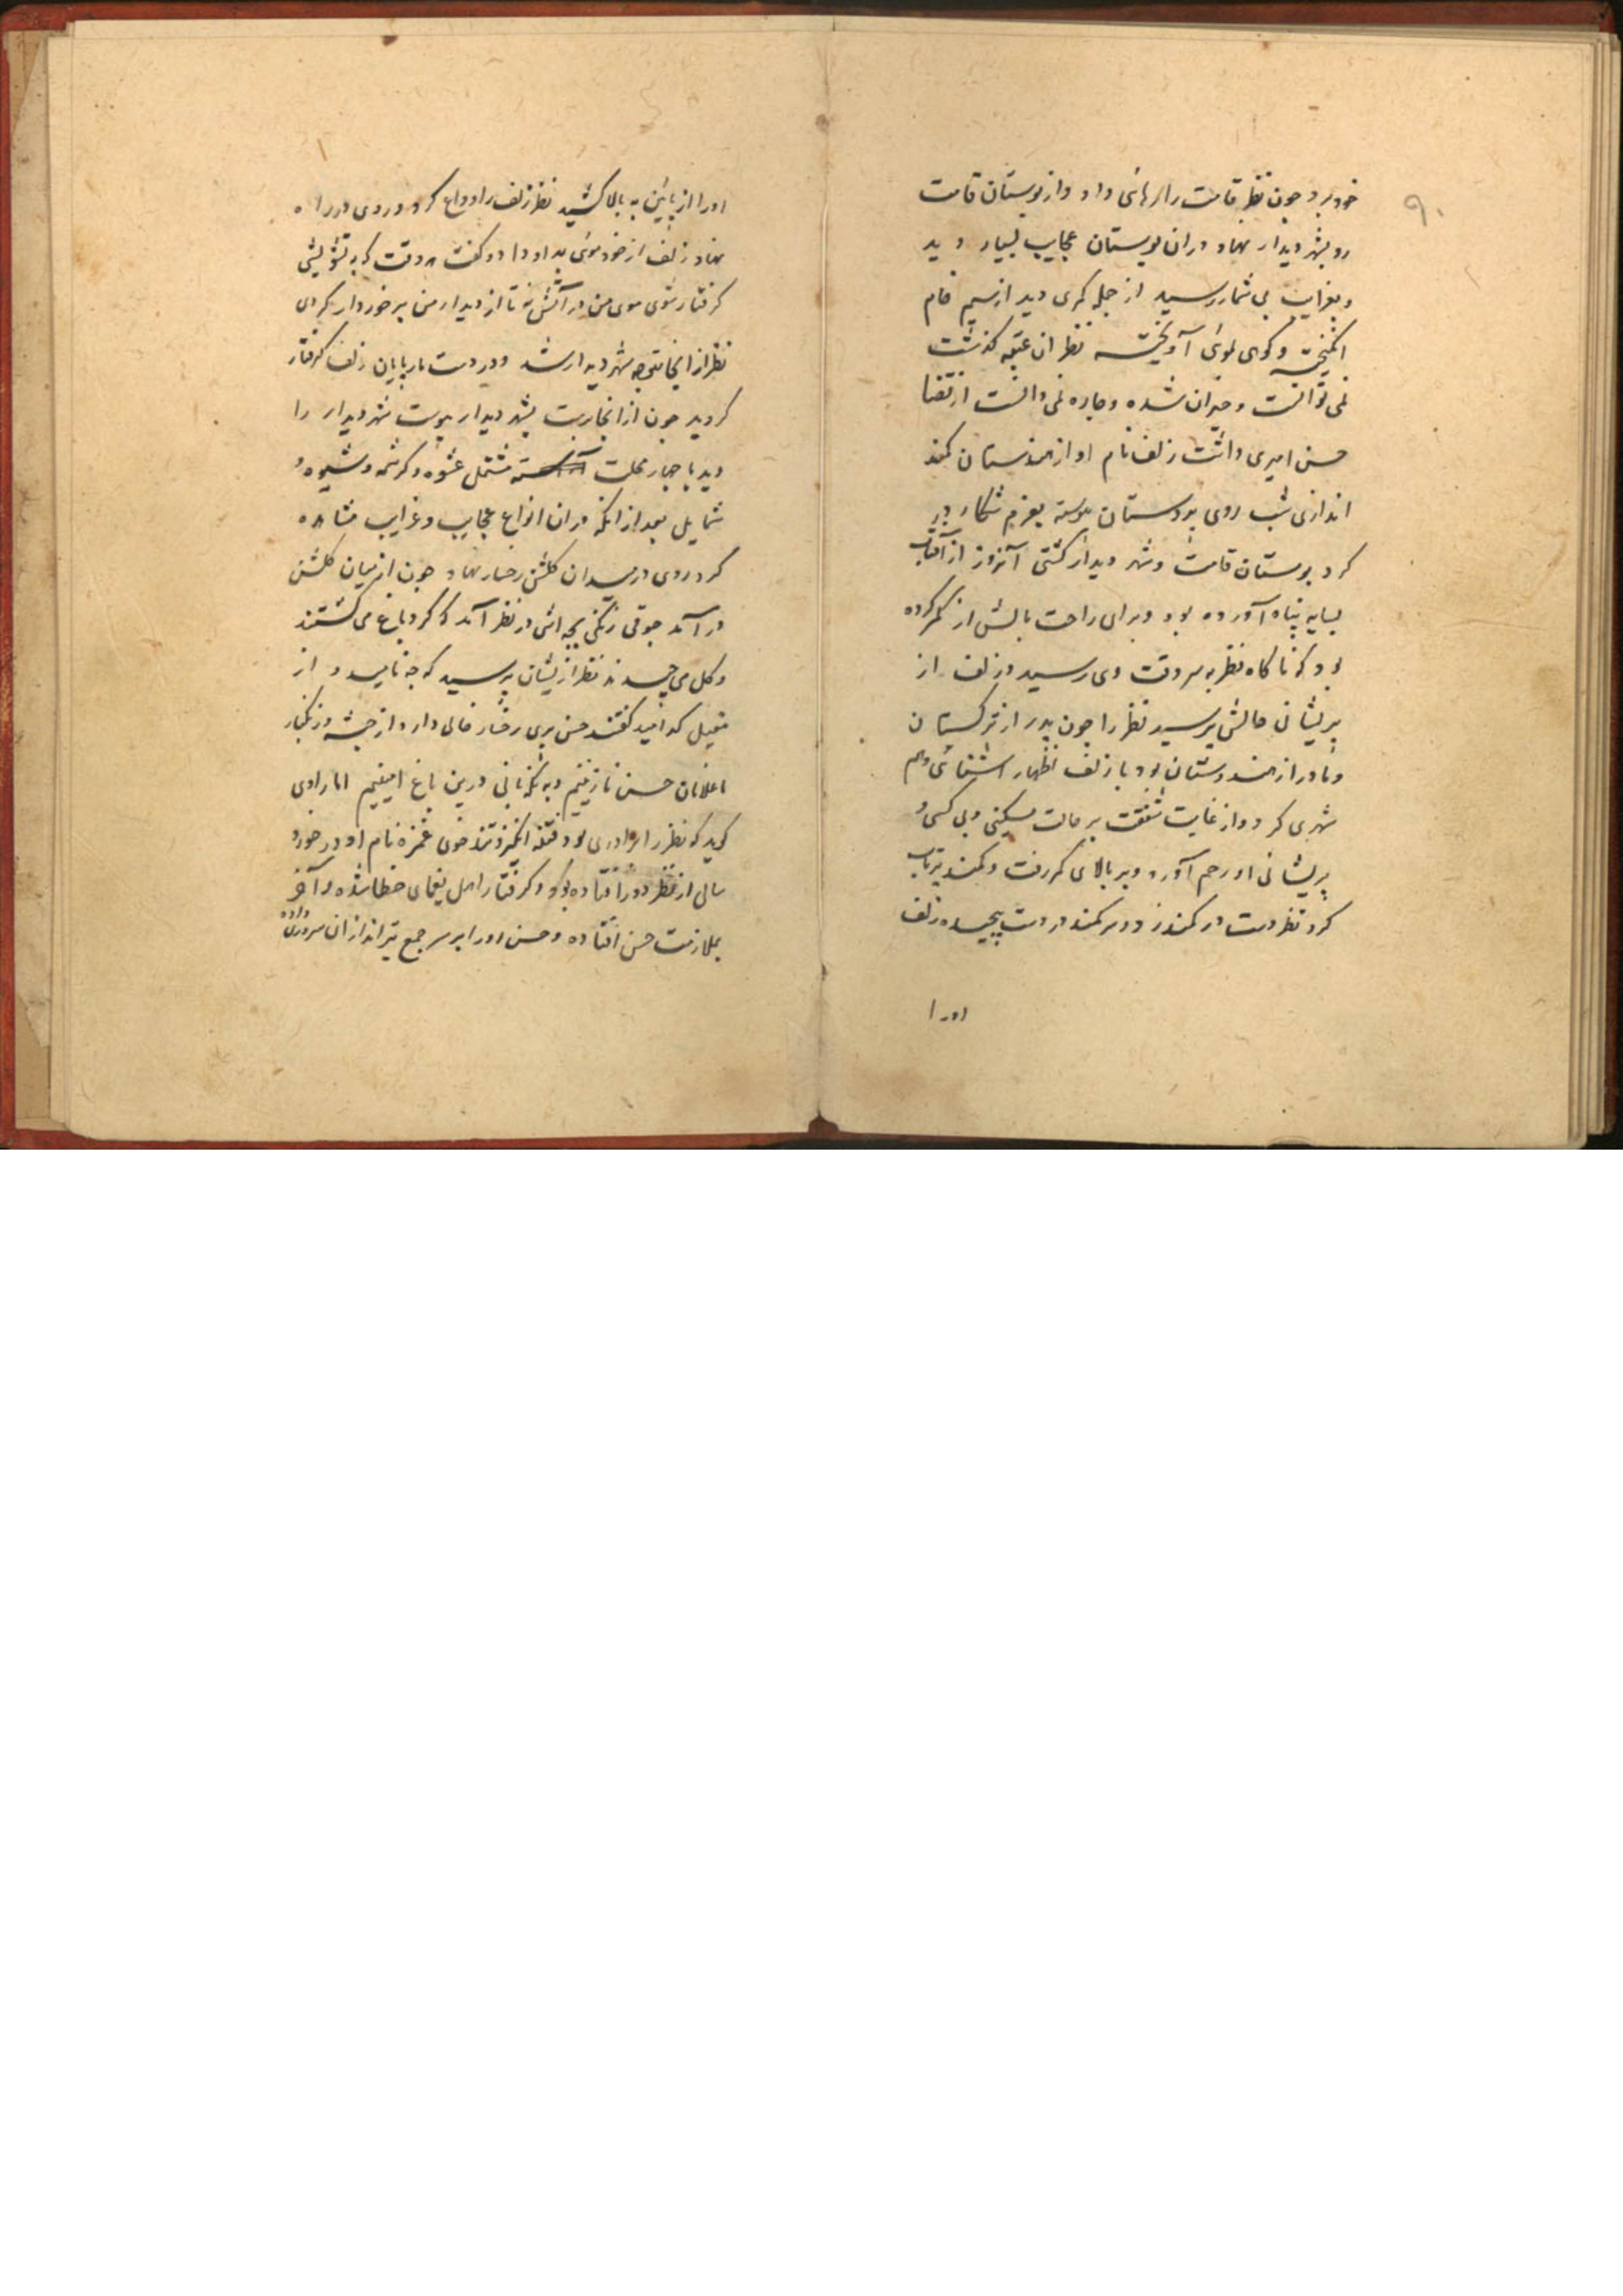 ۹۰
خود برد چون نظر قامت را رهائی داد و از بوستان قامت
رو بشهر دیدار نهاد در ان بوستان عجایب بسیار دید
و بغرایب بی شمار رسید از جمله کمری دید از سیم خام
انکیخته و کوهی بموئی آویخته نظر ان عقبه کذشت
نمی توانست و حیران شده و چاره نمی دانست از قضا
حسن امیری داشت زلف نام او از هندستان کمند
اندازی شب روی بود ستان پیوسته بعزم شکار در
کرد بوستان قامت و شهر دیدار کشتی آنروز از آفتاب
بسایه پناه آورده بود و برای راحت بالش از کمر کرده
بود که ناکاه نظر به سر وقت وی رسید و زلف از
پریشانی حالش پرسید نظر را چون پدر از ترکستان
و مادر از هندوستان بود با زلف اظهار اشنائی و هم
شهری کرد و از غایت شفقت بر حالت مسکینی و بی کسی و
پریشانی او رحم آورد و بر بالای کمر رفت و کمند پرتاب
کرد نظر دست در کمند زد و سر کمند در دست پیچیده زلف
اورا
اورا از پائین به بالا کشید نظر زلف را وداع کرد و روی در راه
نهاد زلف از خود موئی بدو داد و کفت هر وقت که به تشویشی
کرفتار شوی موی من در آتش نه تا از دیدار من برخوردار کردی
نظر از انجا متوجه شهر دیدار شد و در دست مار پایان زلف کرفتار
کردید چون از انجا رست بشهر دیدار پیوست شهر دیدار را
دید با چهار محلت مشتمل عشوه و کرشمه و شیوه و
شمایل بعد از انکه در ان انواع عجایب و غرایب مشاهده
کرد روی در میدان کلشن رخسار نهاد چون از میان کلشن
در آمد جوقی زنکی بچه اش در نظر آمد که کرد باغ می کشتند
و کل می چیدند نظر ازیشان پرسید که چه نامید و از
قبیل که اید کفتند حسن پری رخسار خالی دارد از حبشه و زنکبار
ما غلامان حسن نازنینیم و به نکهبانی درین باغ امینیم اما راوی
کوید که نظر را برادری بود فتنه انکیز و تند خوی غمزه نام او در خورد
سالی از نظر دور افتاده بود و کرفتار اهل یغمای خطا شده و آخر
بملازمت حسن افتاده و حسن اورا بر سر جمع تیراندازان سروری داده